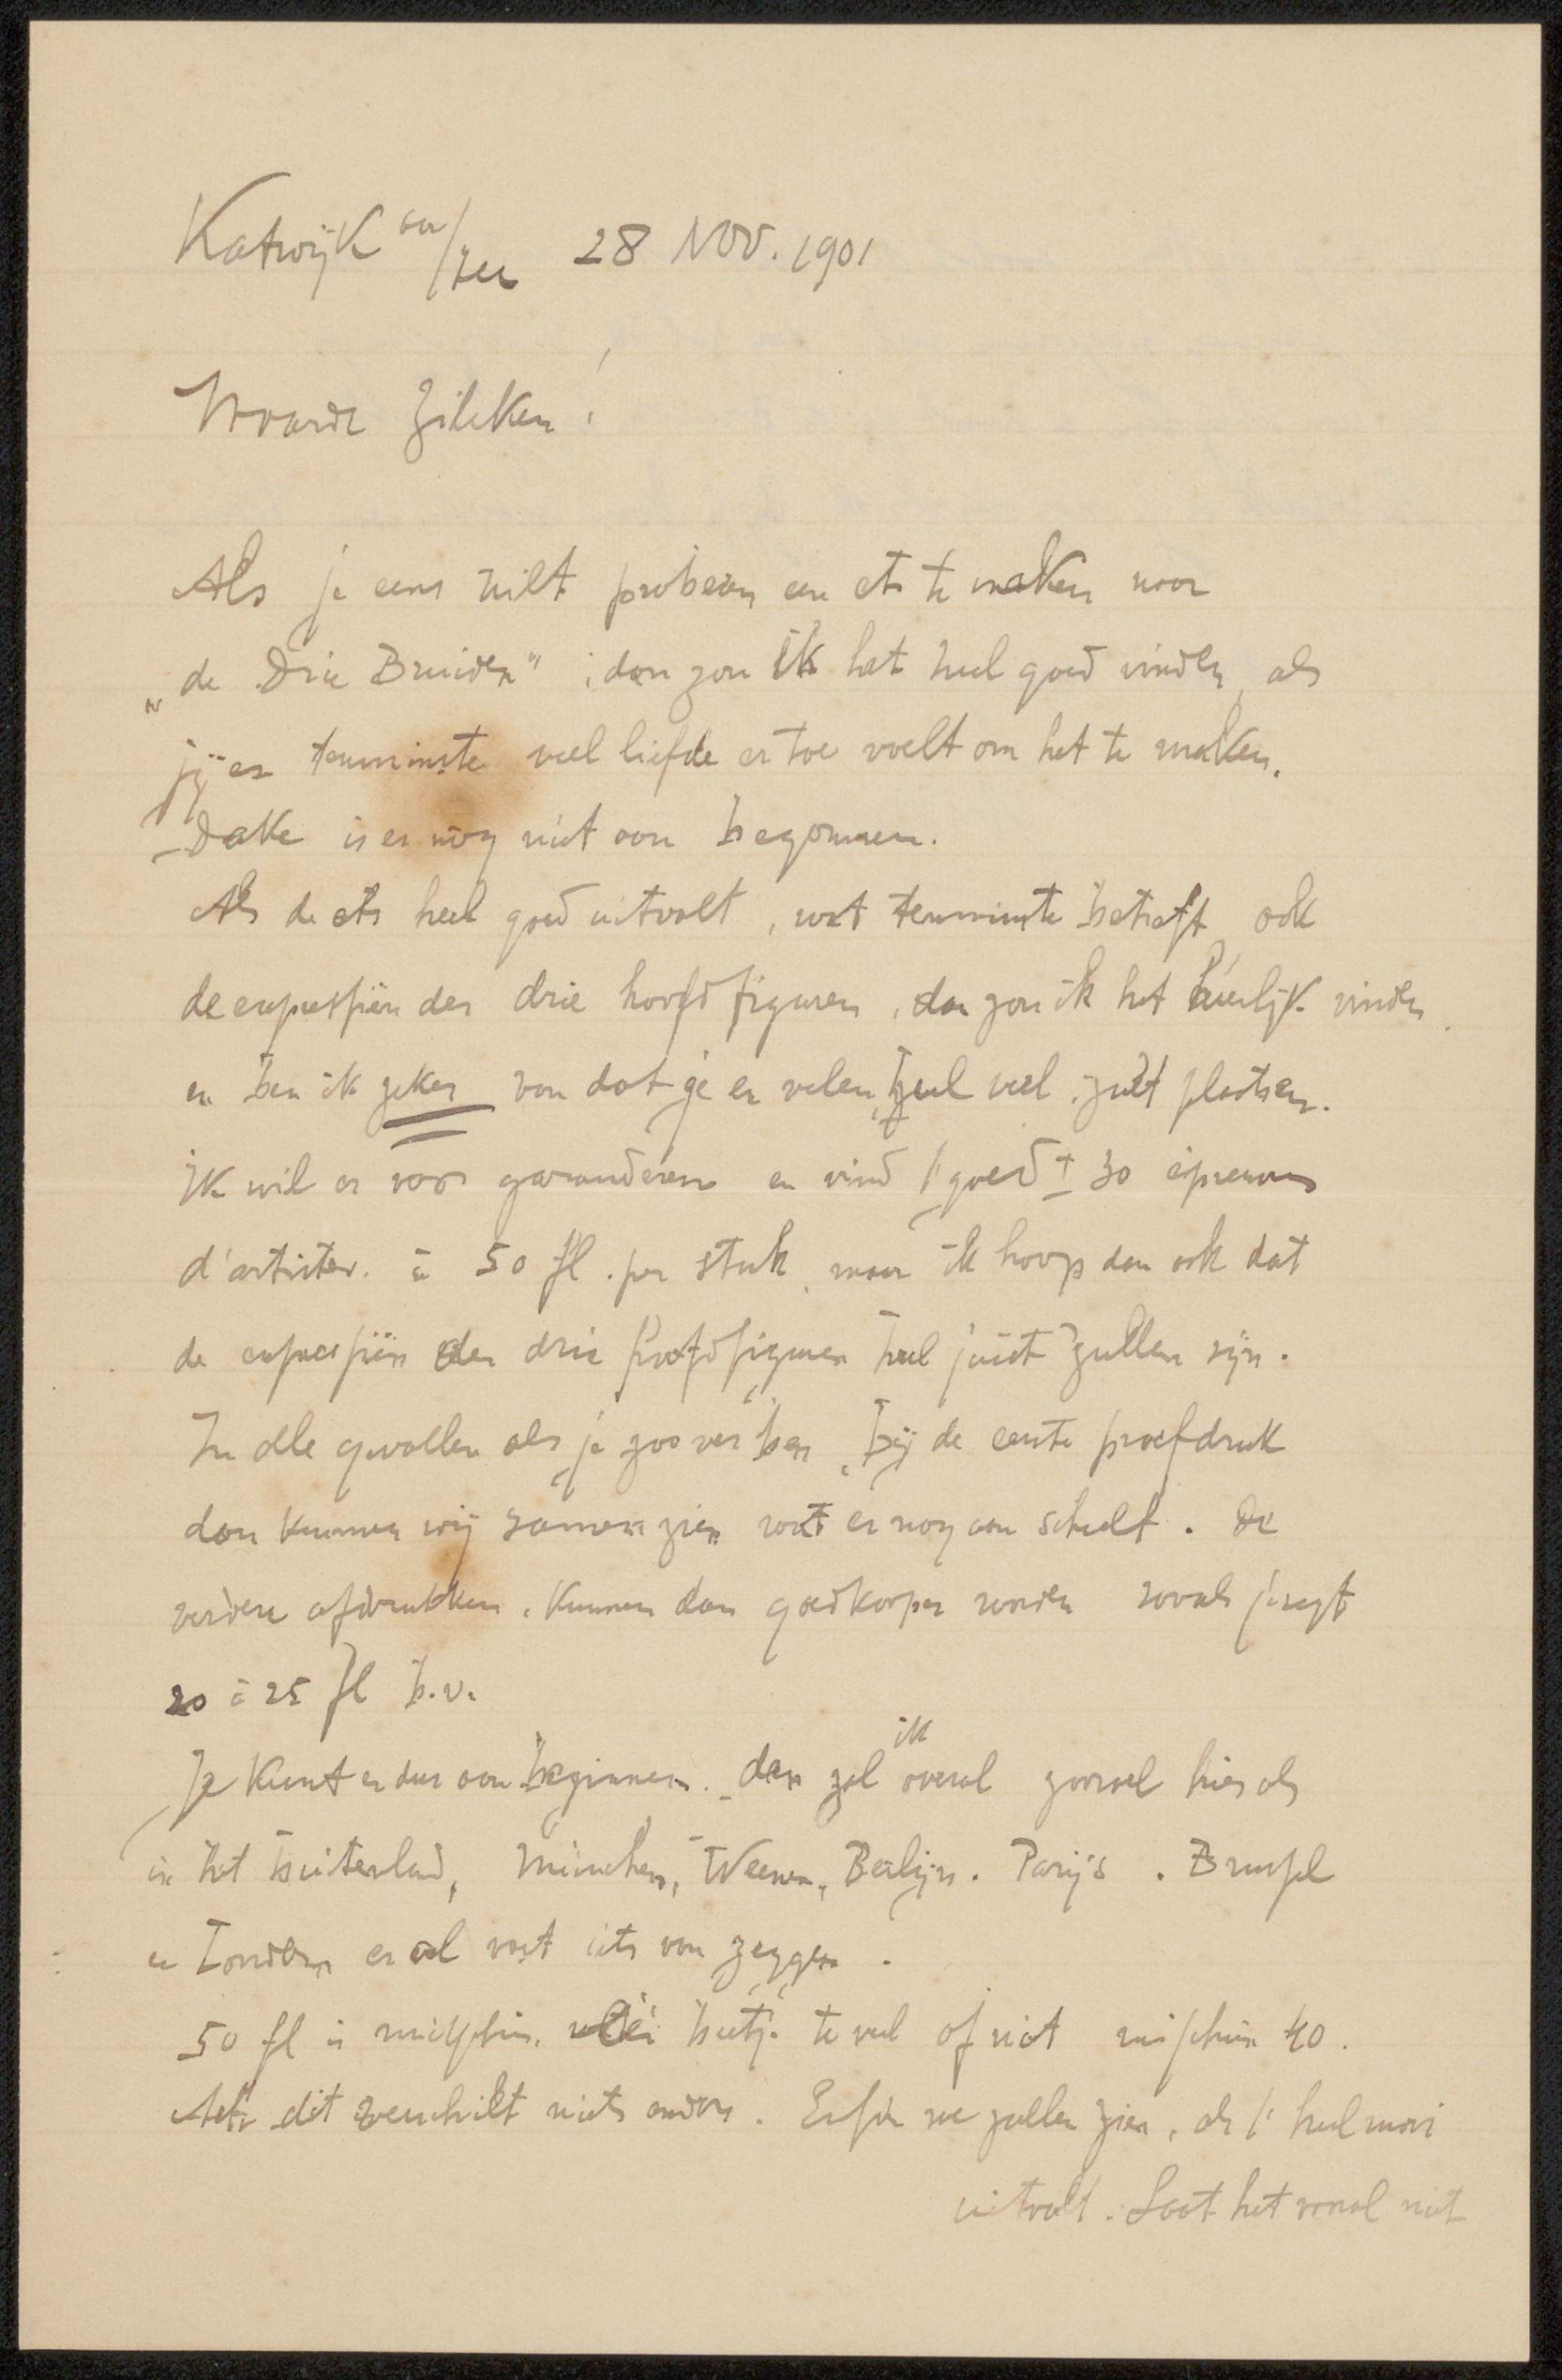 Katwijk aan/Zee 28 Nov. 1901
Waarde Zilcken!
Als je eens wilt probeeren een ets te maken voor
„de Drie Bruiden" , dan zou ik het heel goed vinden, als
jij er tenminste veel liefde er toe voelt om het te maken.
Dake is er nog niet aan begonnen.
Als de ets heel goed uitvalt, wat tenminste betreft ook
de expressiën der drie hoofdfiguren, dan zou ik het heerlijk vinden
en ben ik zeker van dat je er velen, heel veel zult plaatsen.
Ik wil er voor garanderen en vind 't goed ± 30 épreuves
d'artistes. à 50 fl. per stuk, maar ik hoop dan ook dat
de expressiën der drie hoofdfiguren heel juist zullen zijn.
In alle gevallen als je zoo ver ben, bij de eerste proefdruk
dan kunnen wij samen zien wat er nog aan scheelt. De
verdere afdrukken, kunnen dan goedkooper worden zooals je zegt
20 à 25 fl b.v.
Je kunt er dus aan beginnen. dan zal ik overal zoowel hier als
in het buitenland, München, Weenen, Berlijn. Parijs. Brussel
en Londen er al vast iets van zeggen.
50 fl is misschien beetje te veel of niet misschien 40.
dit verschilt niets anders. Enfin we zullen zien, als 't heel mooi
uitvalt. Laat het vooral niet